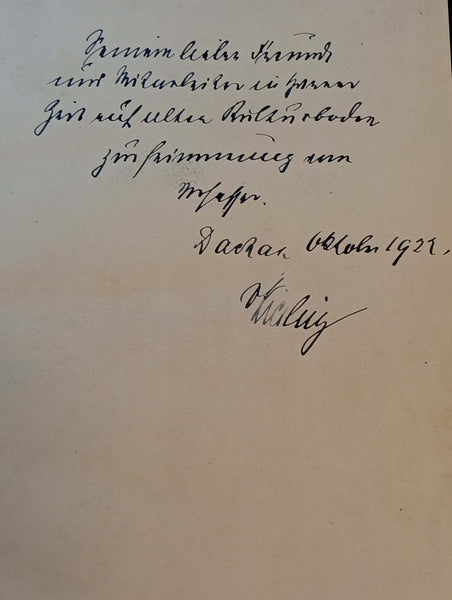 Seinem lieben Freunde
und Mitarbeiter in ferner
Zeit auf altem Kulturboden
zur Erinnerung vom
Verfasser.
Dachau Oktober 1922.